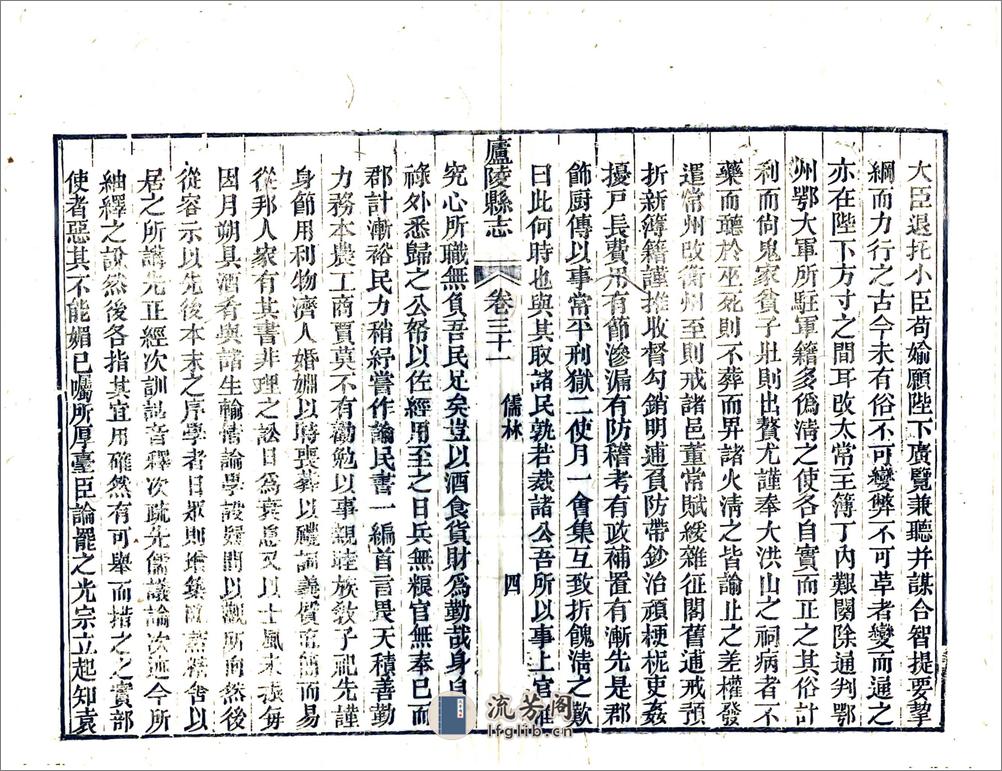 大臣退托小臣苟媮願陛下廣覽兼聽并謀合智提要挈
綱而力行之古今未有俗不可變弊不可革者變而通之
亦在陛下方寸之間耳改太常主簿丁內艱闋除通判鄂
州鄂大軍所駐軍籍多僞清之使各自實而正之其俗計
利而尙鬼家貧子壯則出贅尤謹奉大洪山之祠病者不
藥而聽於巫死則不葬而畀諸火清之皆諭止之差權發
遣常州改衡州至則戒諸邑董常賦緩雜征閣舊逋戒預
折新簿籍謹推收督勾銷明逋負防帶鈔治頑梗柅吏姦
擾戸長費用有節滲漏有防稽考有政補置有漸先是郡
飾厨傳以事常平刑獄二使月一會集互致折餽清之歎
曰此何時也與其取諸民孰若裁諸公吾所以事上官惟
廬陵縣志
卷三十一
儒林
四
究心所職無負吾民足矣豈以酒食貨財爲勤哉身自
祿外悉歸之公帑以佐經用至之日兵無糧官無奉已而
郡計漸裕民力稍紓嘗作諭民書一編首言畏天積善勤
力務本農工商賈莫不有勸勉以事親睦族敎子祀先謹
身節用利物濟人婚姻以時喪葬以禮詞義質直簡而易
從邦人家有其書非理之訟日爲衰息又以士風未振每
因月朔具酒肴與諸生輸情論學設疑問以觀所向然後
從容示以先後本末之序學者日衆則增築臨蒸精舍以
居之所講先正經次訓詁音釋次疏先儒議論次述今所
紬繹之說然後各指其宜用確然有可舉而措之之實部
使者惡其不能媚己囑所厚臺臣論罷之光宗立起知袁
流芳阁
lfglib.cn